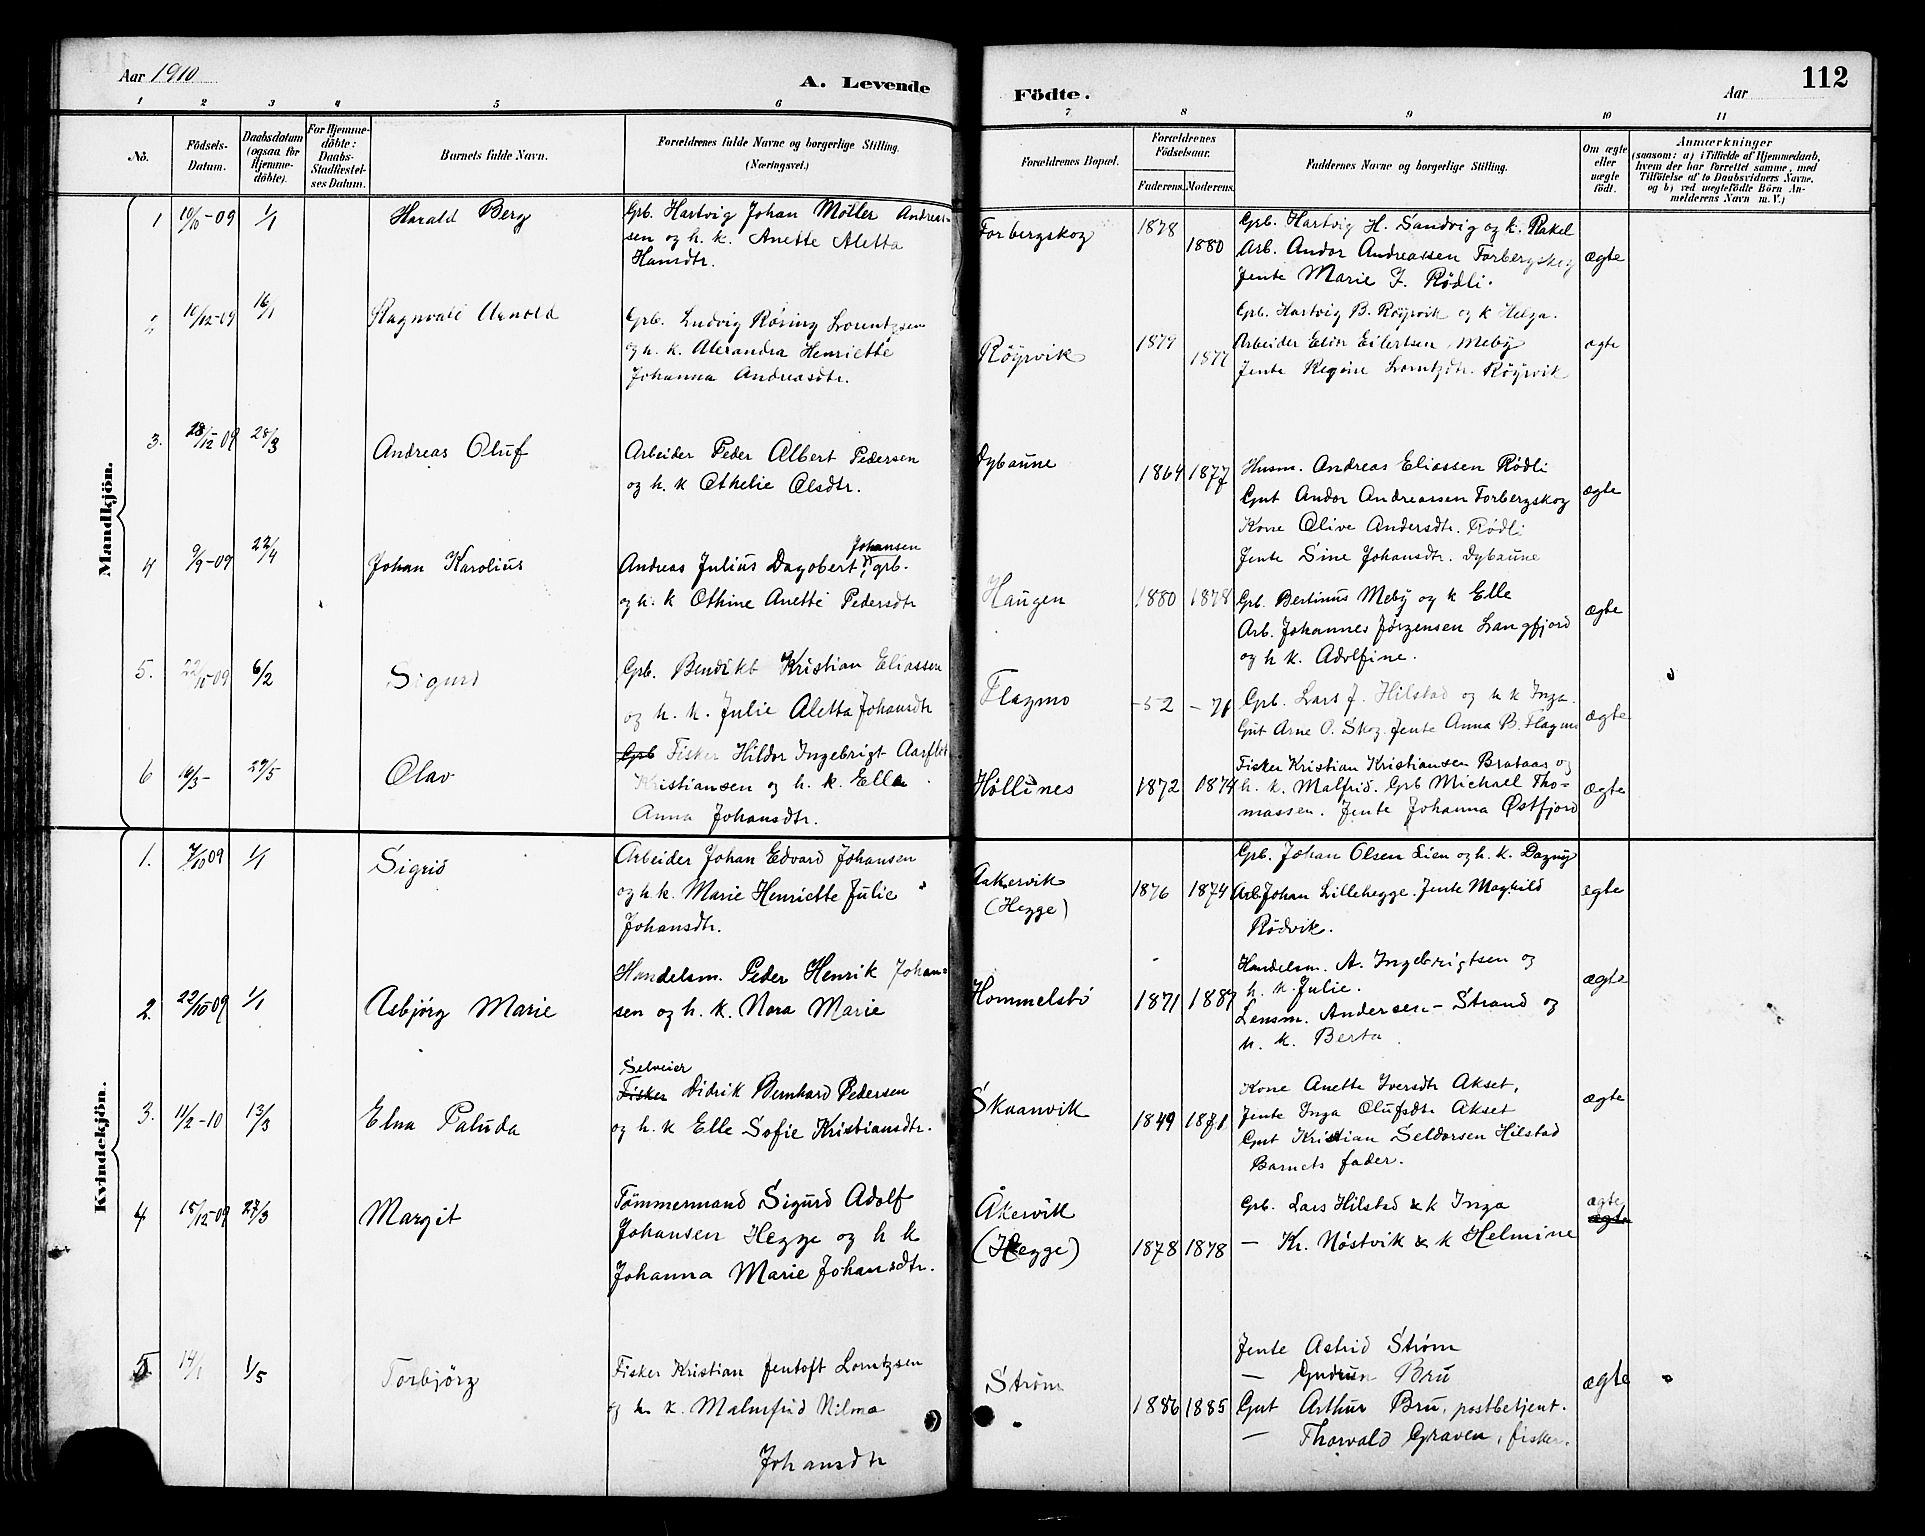 Aar 1910
A. Levende
Födte.
Aar
112
1 2 3 4 5 6 7 8 9 10 11
No.
Födsels-
Datum.
Daabsdatum
(ogsaa for
Hjemme-
döbte).
For Hjemme-
döbte:
Daabs-
Stadfæstel-
ses Datum.
Barnets fulde Navn.
Forældrenes fulde Navne og borgerlige Stilling.
(Næringsvei.)
Forældrenes Bopæl.
Forældrenes
Födselsaar.
Faderens. Moderens.
Faddernes Navne og borgerlige Stilling.
Om ægte
eller
uægte
født.
Anmærkninger
(saasom: a) i Tilfælde af Hjemmedaab,
hvem der har forrettet samme, med
Tilföielse af to Daabsvidners Navne,
og b) ved uægtefödte Börn An-
melderens Navn m. V.)
Mandkjön.
1 10/10-09 1/1 Harald Berg
Grb. Hartvig Johan Möller Andreas-
sen og h. k. Anette Aletta
Hansdtr.
Forbergskog 1878 1880
Grb. Hartvig H. Sandvig og k. Rakel
Arb. Andor Andreassen Forbergskog
Jente Marie J. Rødli.
ægte
2 10/12-09 16/1 Ragnvald Arnold
Grb. Ludvig Røsing Lorentzsen
og h. k. Alexandra Henriette
Johanna Andreasdtr.
Röyrvik 1877 1877
Grb. Hartvig B. Röyrvik og k Helga.
Arbeider Elin Eilertsen, Meby
Jente Regine Lorntzdtr. Röyrvik
ægte
3. 28/12 09 28/3 Andreas Oluf
Arbeider Peder Albert Pedersen
og h. k Othelie Olsdtr.
Dybaune 1864 1877
Husm. Andreas Eliassen Rødli
Gut Andor Andreassen Forbergskog
Kone Olive Andersdtr. Rødli
Jente Sine Johansdtr. Dybaune
ægte
4 9/9-09 22/4 Johan Karolius
Johansen
Andreas Julius Dagobert, grb.
og h. k Othine Anette Pedersdtr
Haugen 1880 1878
Grb. Bertinus Meby og k Elle
Arb. Johannes Jørgensen Langfjord
og h k. Adolfine.
ægte
5. 22/10-09 6/2 Sigurd
Grb. Bendikt Kristian Eliassen
og h. k. Julie Aletta Johansdtr
Flagmo -52 -71
Grb. Lars J. Hilstad og h k Inga.
Gut Arne O. Skog. Jente Anna B. Flagmo
ægte
6 16/3- 29/5 Olav
Grb Fisker Hildor Ingebrigt Aarflot
Kristiansen og h. k. Ella
Anna Johansdtr.
Høllines 1872 0874
Fisker Kristian Kristiansen Brataas og
h. k. Malfrid. Grb Michael Tho-
massen. Jente Johanna Østfjord
ægte
Kvindekjön.
1. 7/10 09 1/1 Sigrid
Arbeider Johan Edvard Johansen
og h. k. Marie Henriette Julie
Johansdtr.
Aakervik
(Hegge) 1876 1874
Grb. Johan Olsen Lien og h. k. Dagny
Arb. Johan Lillehegge. Jente Maghild
Rødvik.
egte
2. 22/10 09 1/1 Asbjörg Marie
Handelsm. Peder Henrik Johan-
sen og h. k. Nora Marie
Hommelstö 1871 1887
Handelsm. A. Ingebrigtsen og
h. k. Julie.
Lensm. Andersen-Strand og
h. k. Berta.
ægte
3. 11/2-10 13/3 Elna Paluda
Selveier
Fisker Didrik Bernhard Pedersen
og h. k Elle Sofie Kristiansdtr.
Skaanvik 1849 1871
Kone Anette Iversdtr Akset,
Jente Inga Olufsdtr Akset
Gut Kristian Seldorsen Hilstad
Barnets fader.
ægte
4 15/12-09 27/3 Margit
Tömmermand Sigurd Adolf
Johansen Hegge og h k
Johanna Marie Johansdtr.
Åkervik
(Hegge) 1878 1878
Grb. Lars Hilstad & k Inga
— Kr. Nøstvik & k Helmine
ægte
ægte
5. 14/1 1/5 Torbjörg
Fisker Kristian Jentoft Lorntzsen
og h. k. Malmfrid Vilma
Johansdtr
Strøm 1886 1885
Jente Astrid Strøm
— Gudrun Bru
Gut Arthur Bru, postbetjent.
— Thorvald Graven, fisker.
ægte